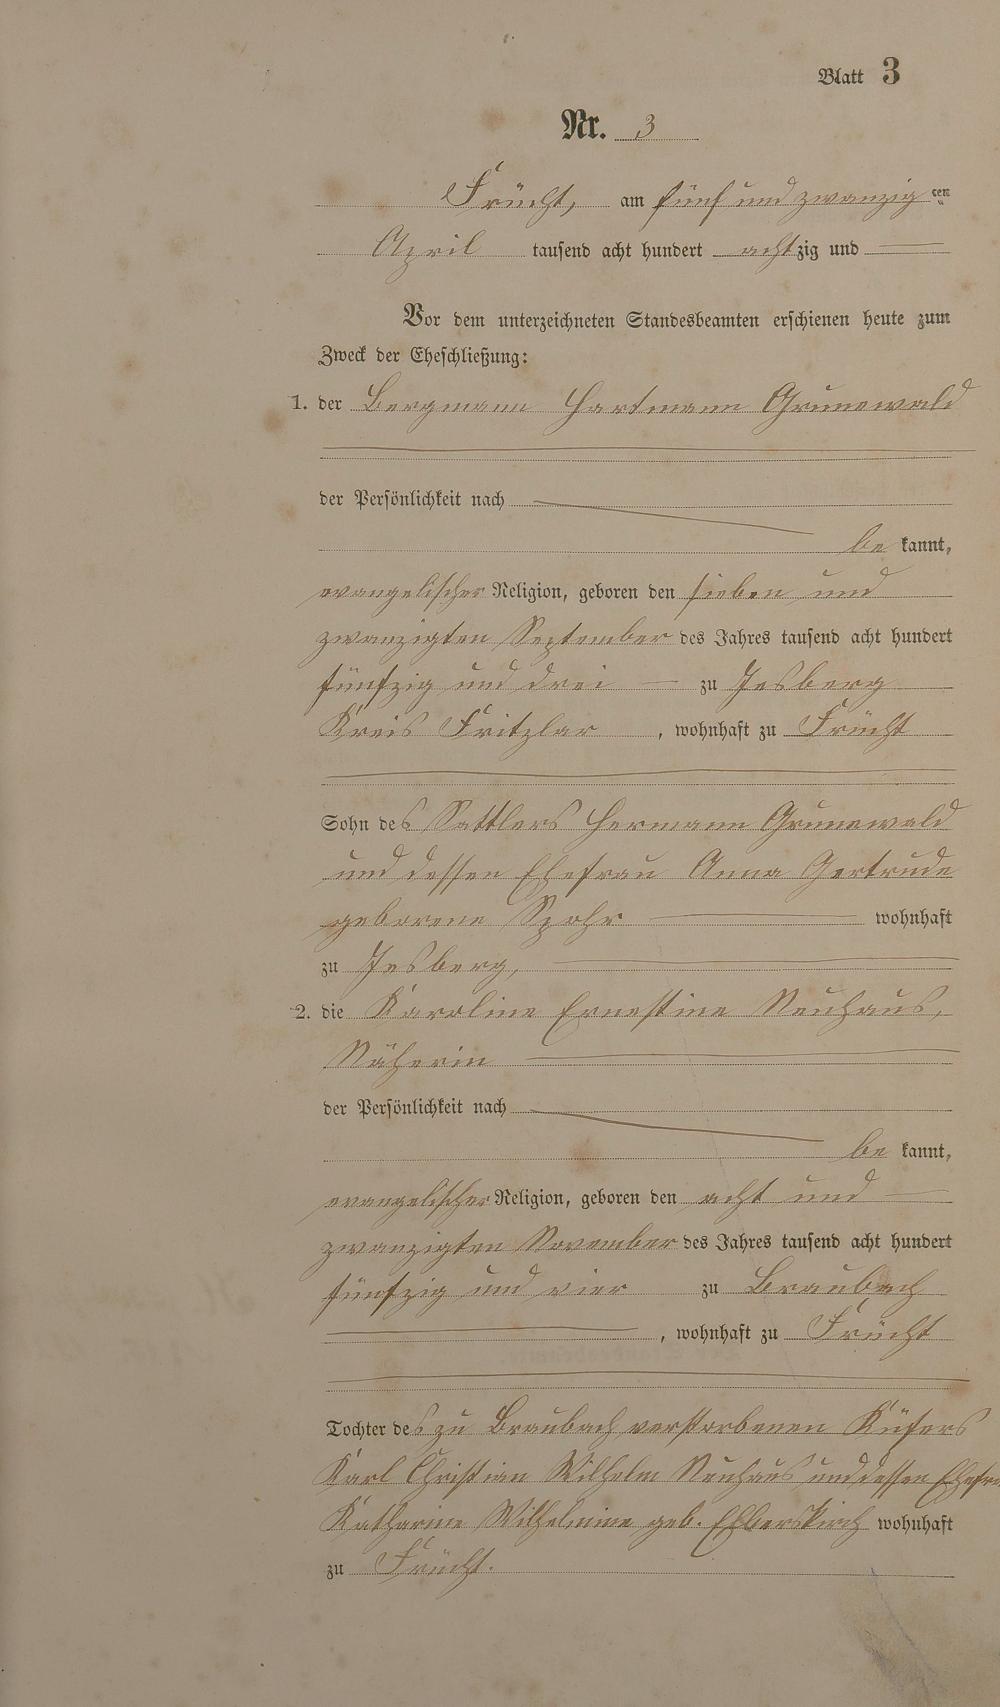 Blatt 3
Nr. 3
Frücht, am fünf und zwanzig ten
April tausend acht hundert achtzig und
Vor dem unterzeichneten Standesbeamten erschienen heute zum
Zweck der Eheschließung:
1. der Bergmann Hartmann Grunewald
der Persönlichkeit nach
be kannt,
evangelischer Religion, geboren den sieben und
zwanzigten September des Jahres tausend acht hundert
fünfzig und drei zu Jesberg
Kreis Fritzlar, wohnhaft zu Frücht
Sohn des Sattlers Hermann Grunewald
und dessen Ehefrau Anna Gertrude
geborene Spohr wohnhaft
zu Jesberg,
2. die Karoline Ernestine Neuhaus,
Näherin
der Persönlichkeit nach
be kannt,
evangelischer Religion, geboren den acht und
zwanzigten November des Jahres tausend acht hundert
fünfzig und vier zu Braubach
, wohnhaft zu Frücht
Tochter des zu Braubach verstorbenen Küfers
Karl Christian Wilhelm Neuhaus und dessen Ehefrau
Katharine Wilhelmine geb. wohnhaft
zu Frücht.